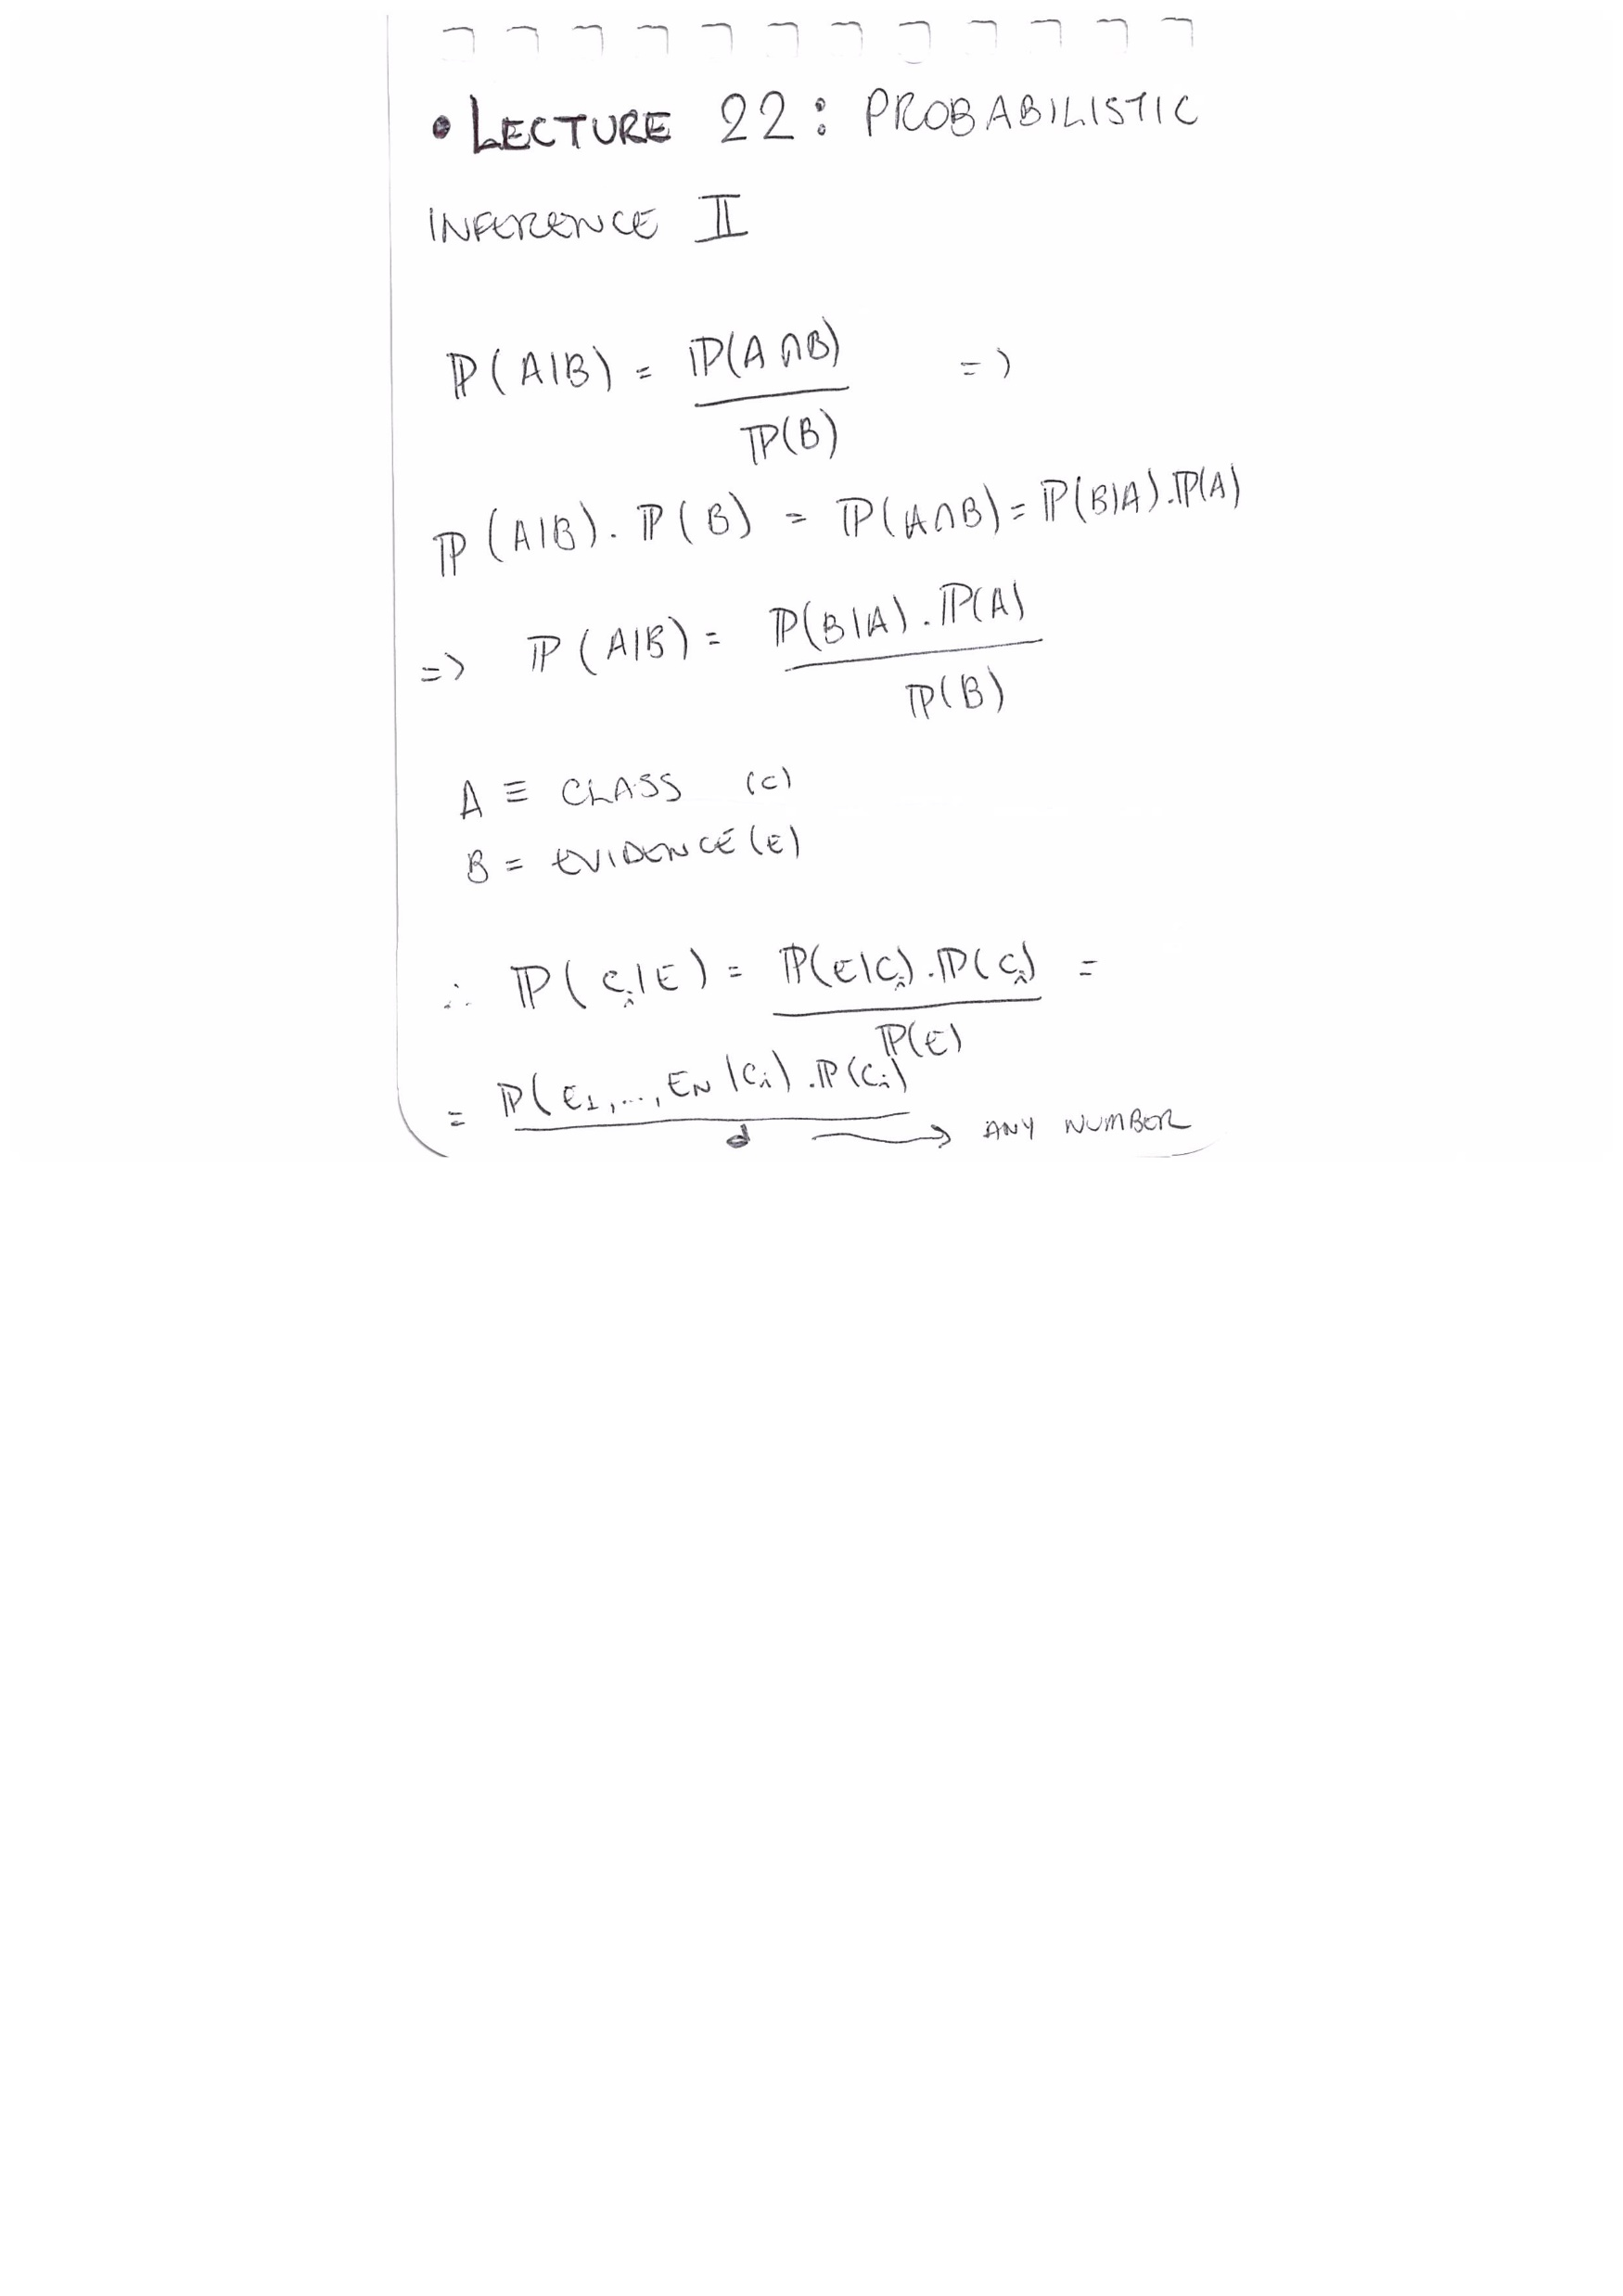 • LECTURE 22: PROBABILISTIC
INFERENCE II
ℙ(A|B) = ℙ(A∩B) / ℙ(B) =>
ℙ(A|B) . ℙ(B) = ℙ(A∩B) = ℙ(B|A) . ℙ(A)
=> ℙ(A|B) = ℙ(B|A) . ℙ(A) / ℙ(B)
A ≡ CLASS (C)
B = EVIDENCE (E)
∴ ℙ(Cᵢ|E) = ℙ(E|Cᵢ) . ℙ(Cᵢ) / ℙ(E) =
= ℙ(E₁,...,E_N|Cᵢ) . ℙ(Cᵢ) / d → ANY NUMBER